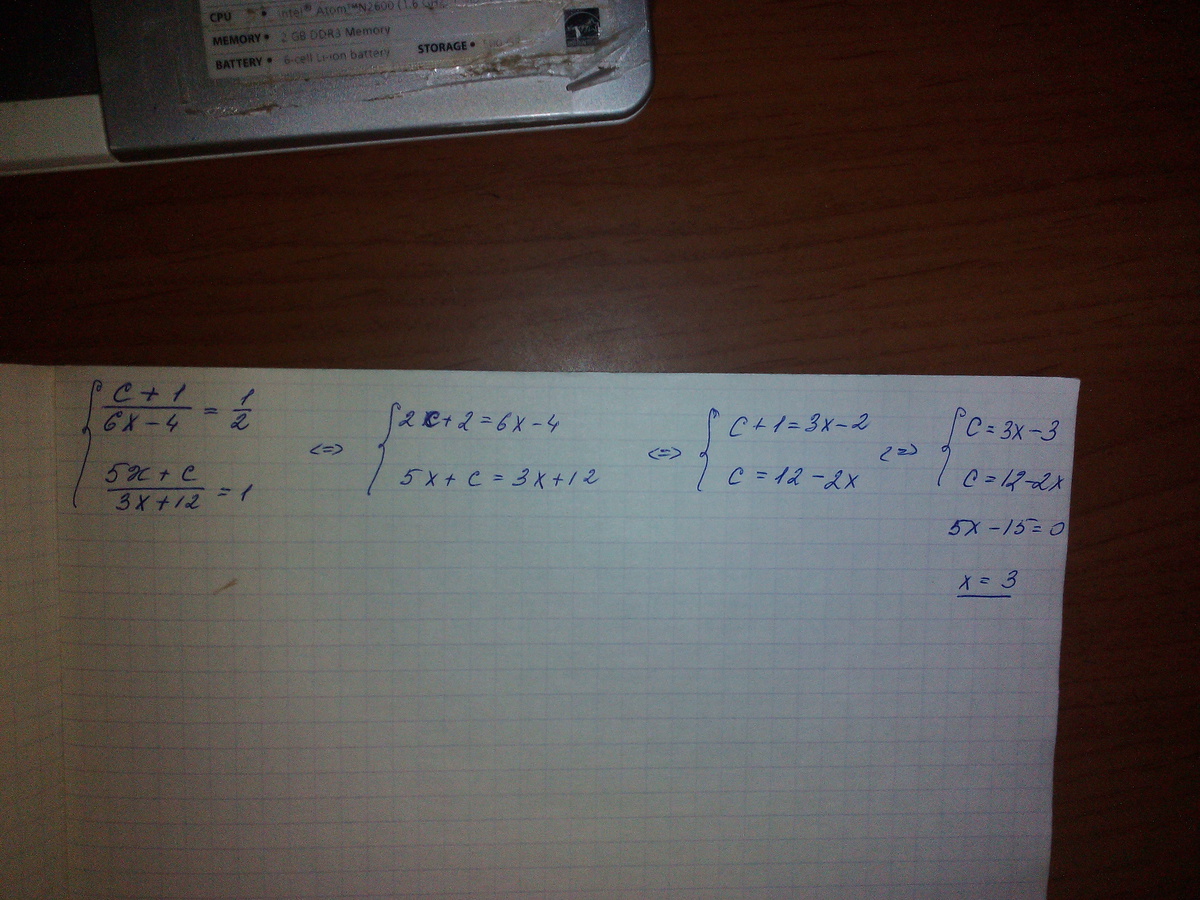 CPU • Intel® Atom™ N2600 (1.6 GHz
MEMORY • 2 GB DDR3 Memory
BATTERY • 6-cell Li-ion battery STORAGE •
{ (c + 1)/(6x - 4) = 1/2 <=> { 2c + 2 = 6x - 4 <=> { c + 1 = 3x - 2 <=> { c = 3x - 3
(5x + c)/(3x + 12) = 1 5x + c = 3x + 12 c = 12 - 2x c = 12 - 2x
5x - 15 = 0
x = 3